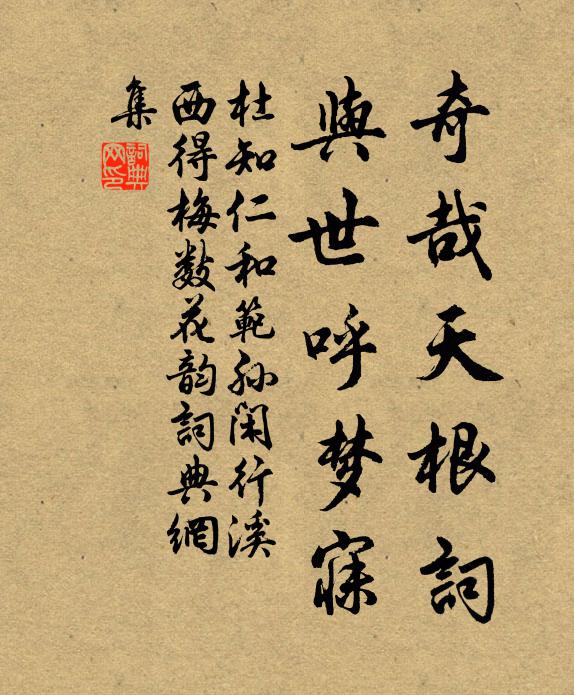 奇哉天根詞
與世呼梦寐
杜知仁和範孙闲行溪
西得梅數花韵詞典網
集
詞典
网印